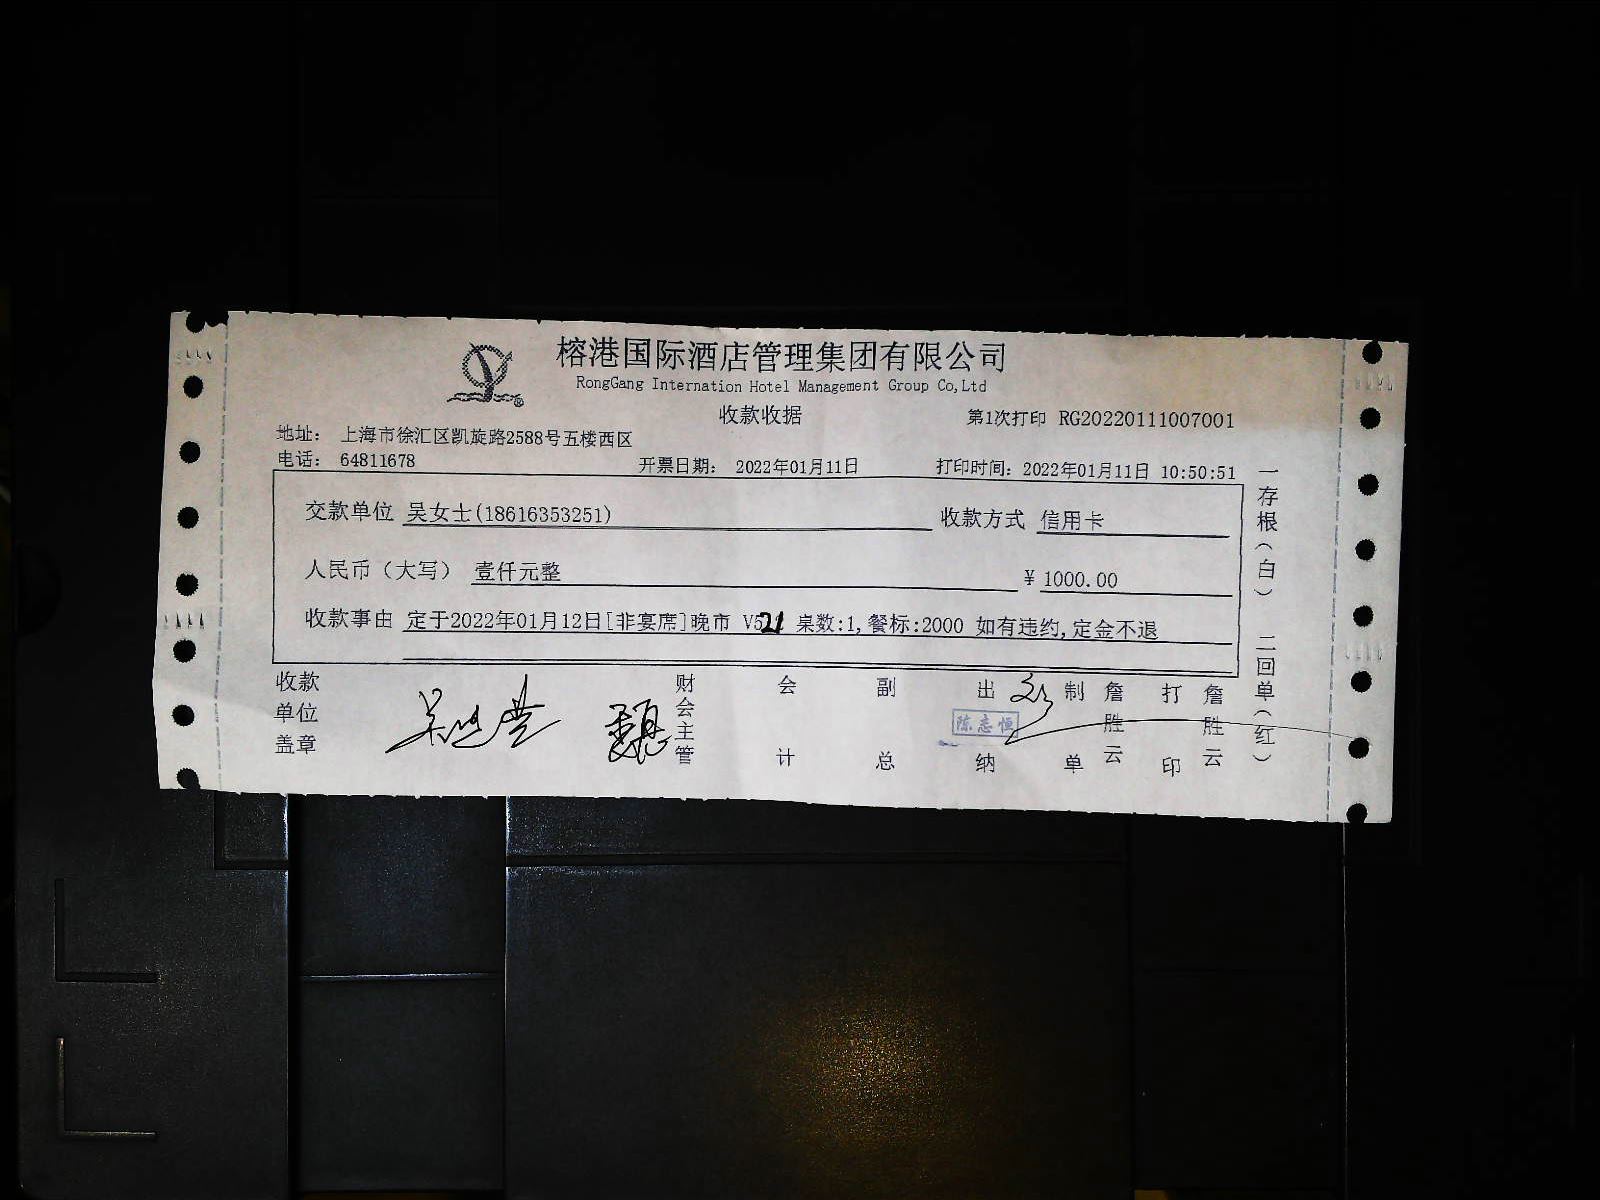 榕港国际酒店管理集团有限公司
RongGang Internation Hotel Management Group Co,Ltd
收款收据
第1次打印 RG20220111007001
地址： 上海市徐汇区凯旋路2588号五楼西区
电话： 64811678
开票日期： 2022年01月11日
打印时间：2022年01月11日 10:50:51
交款单位 吴女士(18616353251)
收款方式 信用卡
人民币（大写） 壹仟元整
¥ 1000.00
收款事由 定于2022年01月12日[非宴席]晚市 V521 桌数:1,餐标:2000 如有违约,定金不退
收款单位盖章
财会主管
会计
副总
出纳
陈志恒
制单
詹胜云
打印
詹胜云
一存根（白） 二回单（红）